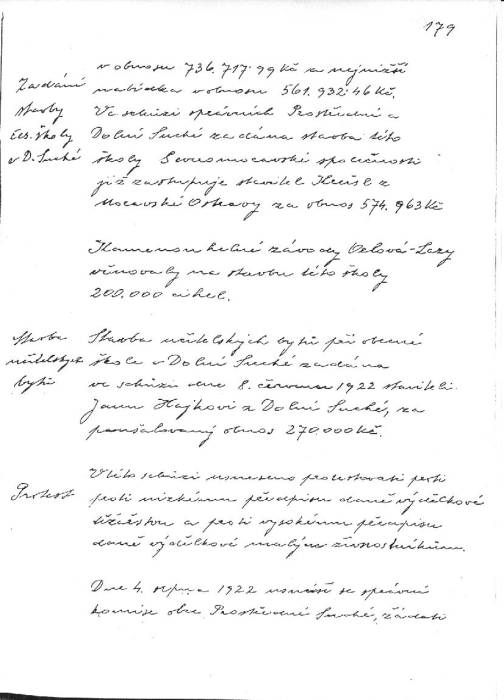 179
v obnosu 736.717·99 Kč a nejnižší
nabídka v obnosu 561.932·46 Kč.
Zadání
stavby
čes. školy
v D. Suché
Ve schůzi správních Prostřední a
Dolní Suché zadána stavba této
školy Severomoravské společnosti
již zastupuje stavitel z
Moravské Ostravy za obnos 574.963 Kč
Kamenouhelné závody Orlová-Lazy
věnovaly na stavbu této školy
200.000 cihel.
Stavba
učitelských
bytů
Stavba učitelských bytů při obecné
škole v Dolní Suché zadána
ve schůzi dne 8. června 1922 staviteli
Janu Hajkovi z Dolní Suché, za
paušalovaný obnos 270.000 Kč.
Protest
V této schůzi usneseno protestovati proti
proti nízkému předpisu daně výdělkové
těžířstvu a proti vysokému předpisu
daně výdělkové malým živnostníkům.
Dne 4. srpna 1922 usnáší se správní
komise obce Prostřední Suché, žádati